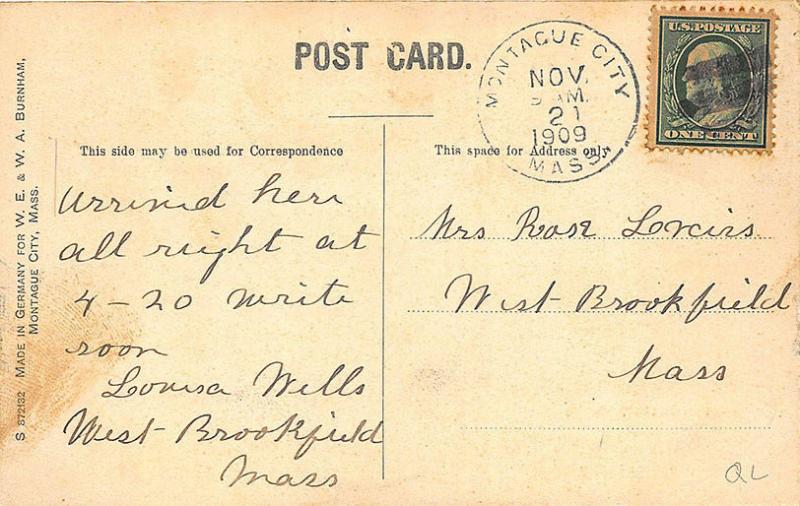 POST CARD.
MONTAGUE CITY
NOV.
AM.
21
1909
MASS.
U.S. POSTAGE
ONE CENT
This side may be used for Correspondence
This space for Address only
Arrived here
all right at
4-20 write
soon
Louisa Wells
West Brookfield
Mass
Mrs Rose
West Brookfield
Mass
S 872132 MADE IN GERMANY FOR W. E. & W. A. BURNHAM,
MONTAGUE CITY, MASS.
QL